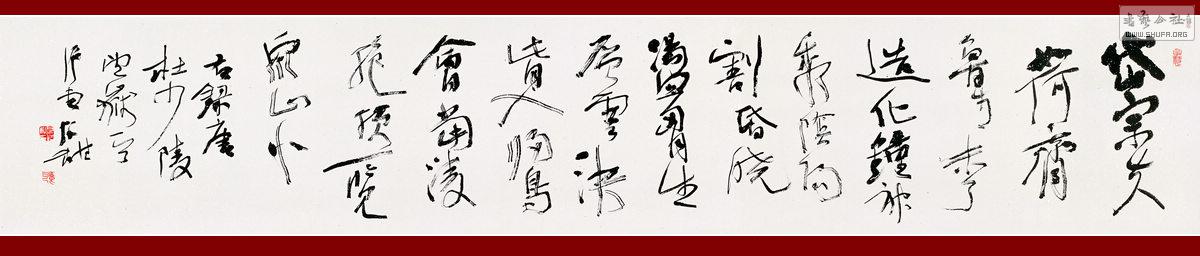 岱宗夫
如何齊
魯青未了
造化鐘神
秀陰陽
割昏曉
盪胸生
層雲決
眥入歸鳥
會當凌
絕頂一覽
眾山小
右錄唐
杜少陵
望嶽一首
书艺公社
WWW.SHUFA.ORG